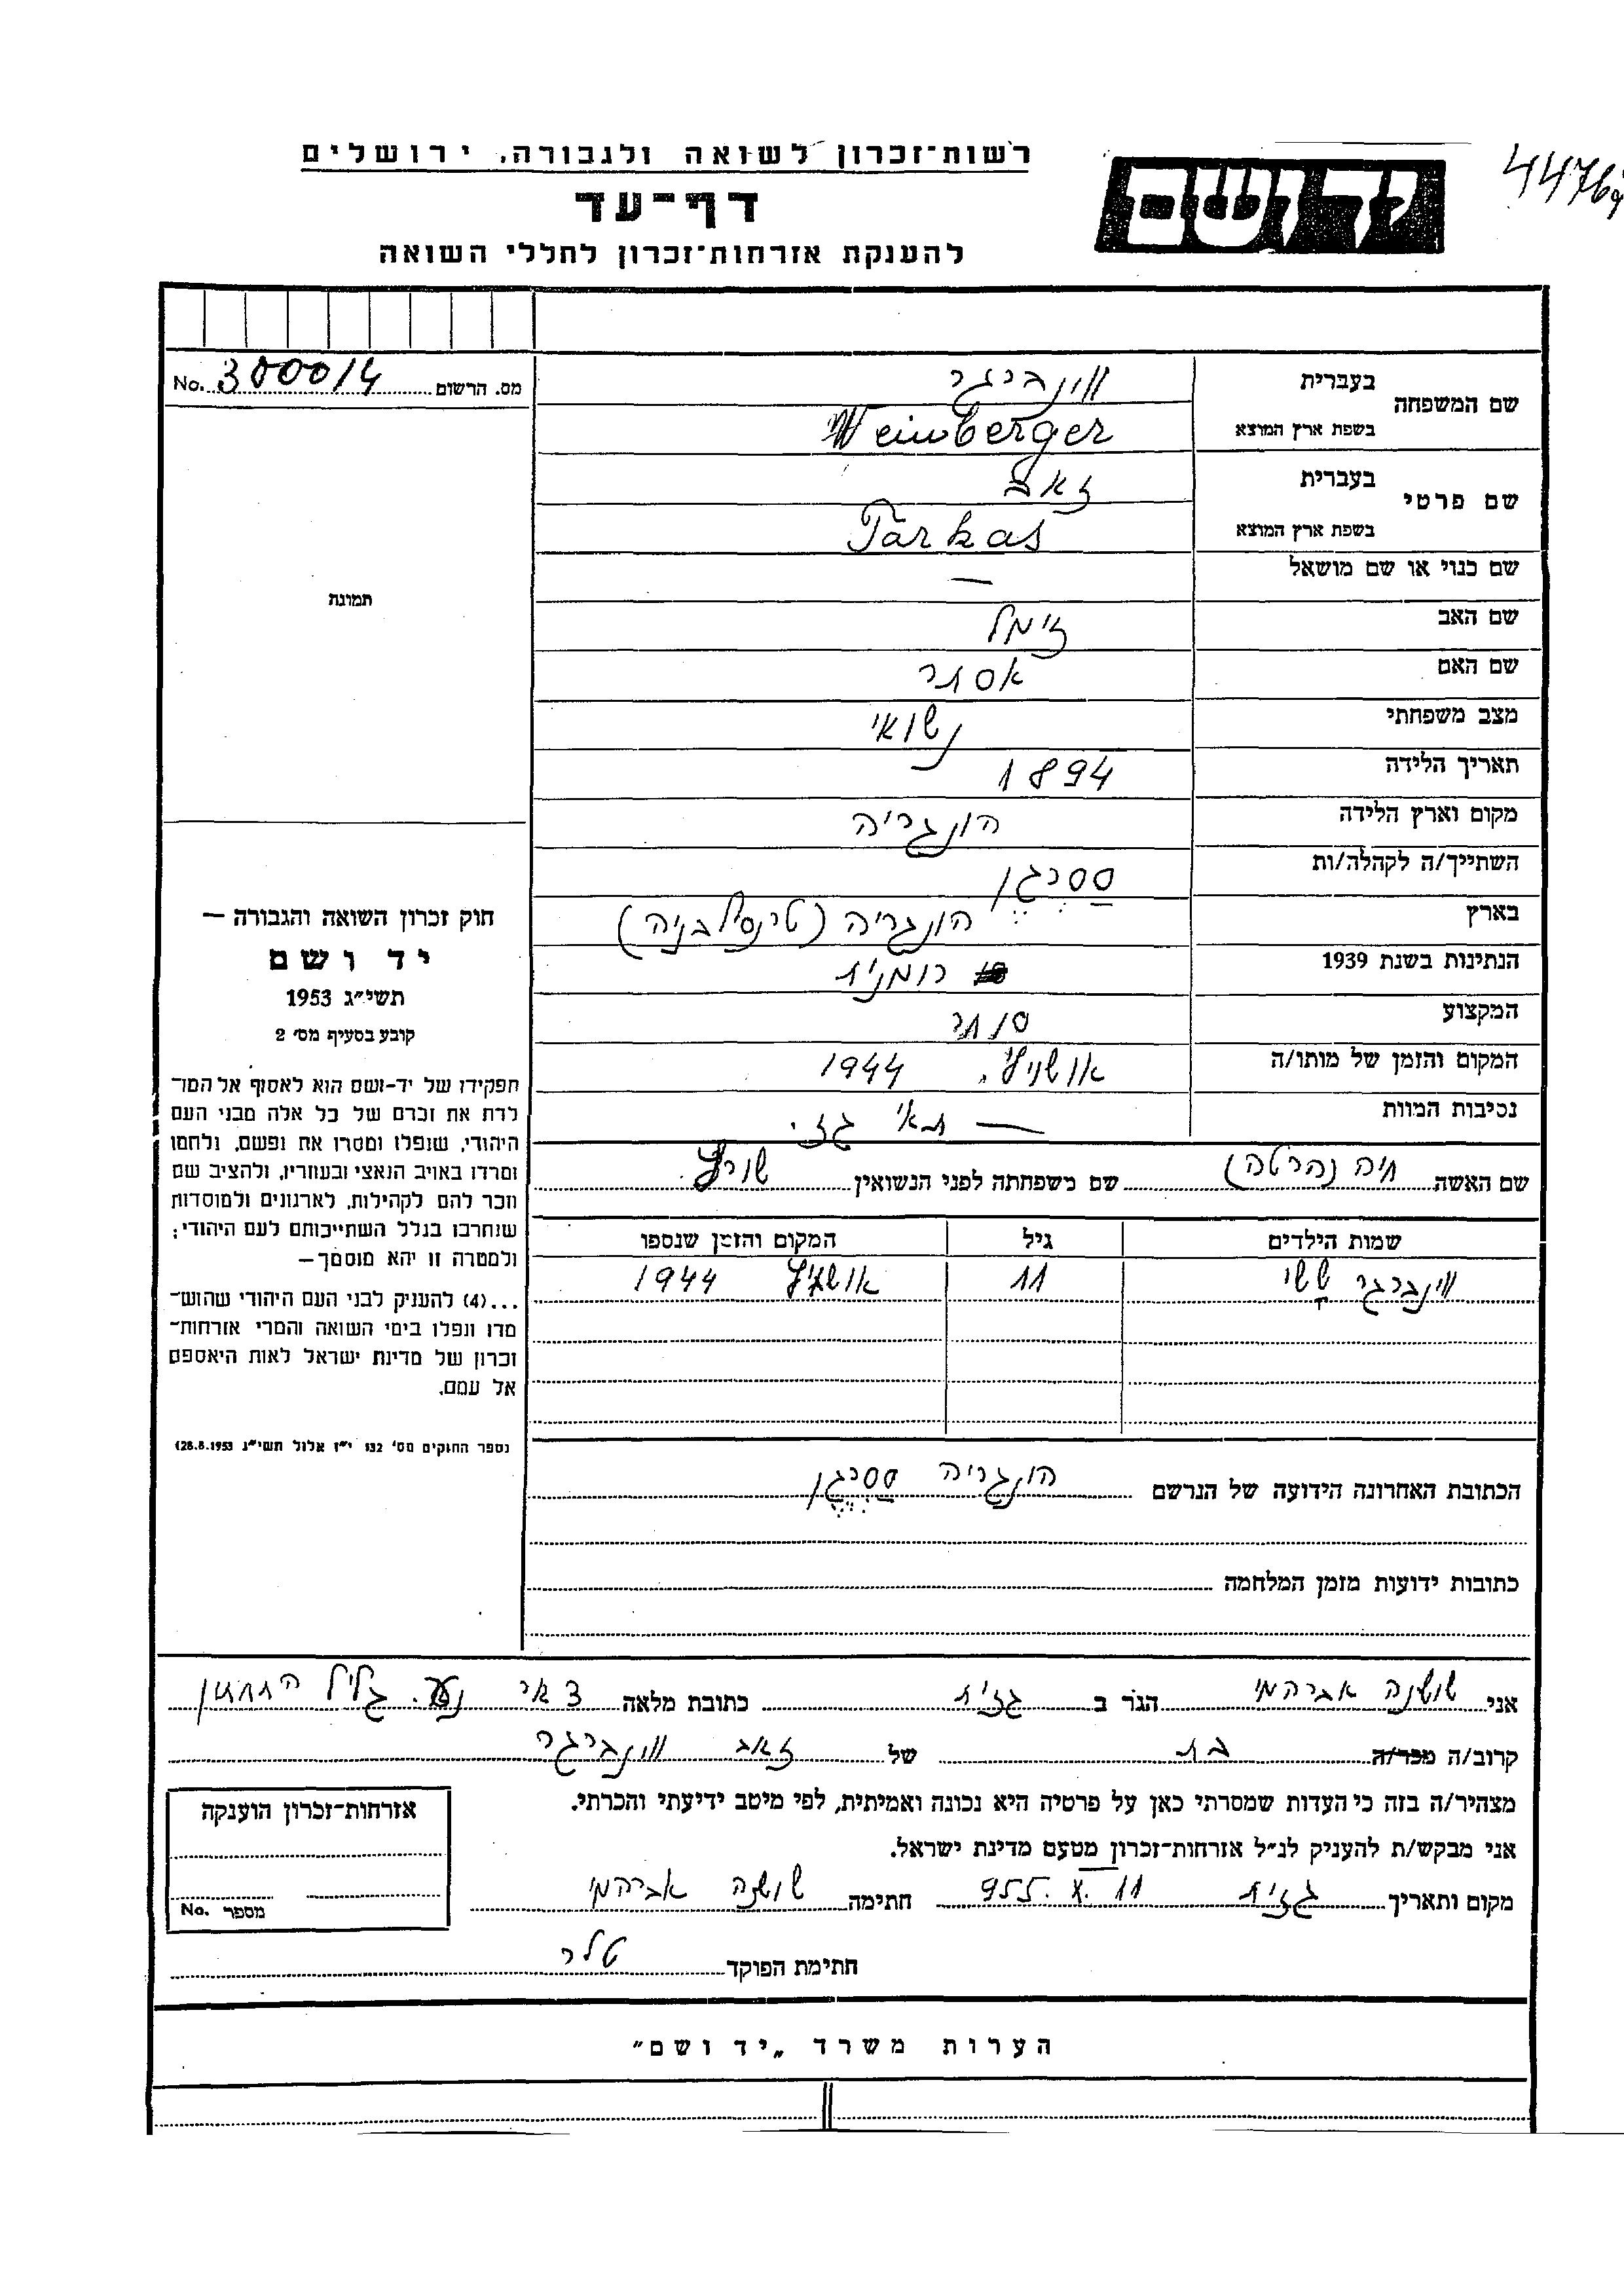 רשות־זכרון לשואה ולגבורה, ירושלים
יד ושם
דף־עד
להענקת אזרחות־זכרון לחללי השואה
מס. הרשום 300014 No.
שם המשפחה בעברית ויינברגר
בשפת ארץ המוצא Weinberger
שם פרטי בעברית זאב
בשפת ארץ המוצא Farkas
שם כנוי או שם מושאל —
שם האב זימל
שם האם אסתר
מצב משפחתי נשואי
תאריך הלידה 1894
מקום וארץ הלידה הונגריה
השתייך/ה לקהלה/ות סַסרֵגֶן
בארץ הונגריה (טרנסילבניה)
הנתינות בשנת 1939 רומנית
המקצוע סוחר
המקום והזמן של מותו/ה אושוויץ, 1944
נסיבות המוות — תאי גזי.
שם האשה חיה (הרטה) שם משפחתה לפני הנשואין שורץ
שמות הילדים גיל המקום והזמן שנספו
ויינברגר ששי 11 אושויץ 1944
הכתובת האחרונה הידועה של הנרשם הונגריה סַסרֵגֶן
כתובות ידועות מזמן המלחמה
תמונה
חוק זכרון השואה והגבורה —
יד ושם
תשי״ג 1953
קובע בסעיף מס׳ 2
תפקידו של יד-ושם הוא לאסוף אל המו־
לדת את זכרם של כל אלה מבני העם
היהודי, שנפלו ומסרו את נפשם, נלחמו
ומרדו באויב הנאצי ובעוזריו, ולהציב שם
וזכר להם לקהילות, לארגונים ולמוסדות
שנחרבו בגלל השתייכותם לעם היהודי;
ולמטרה זו יהא מוסמך—
...(4) להעניק לבני העם היהודי שהוש־
מדו ונפלו בימי השואה והמרי אזרחות־
זכרון של מדינת ישראל לאות היאספם
אל עמם.
(ספר החוקים מס׳ 132 י״ז אלול תשי״ג 28.8.1953)
אני שושנה אברהמי הגר ב גזית כתובת מלאה דאר נע. גליל התחתון
קרוב/ה מכר/ה בת של זאב ויינברגר
מצהיר/ה בזה כי העדות שמסרתי כאן על פרטיה היא נכונה ואמיתית, לפי מיטב ידיעתי והכרתי.
אני מבקש/ת להעניק לנ״ל אזרחות־זכרון מטעם מדינת ישראל.
מקום ותאריך גזית 11.X.955 חתימה שושנה אברהמי
חתימת הפוקד טלר
אזרחות־זכרון הוענקה
מספר No.
הערות משרד „יד ושם״